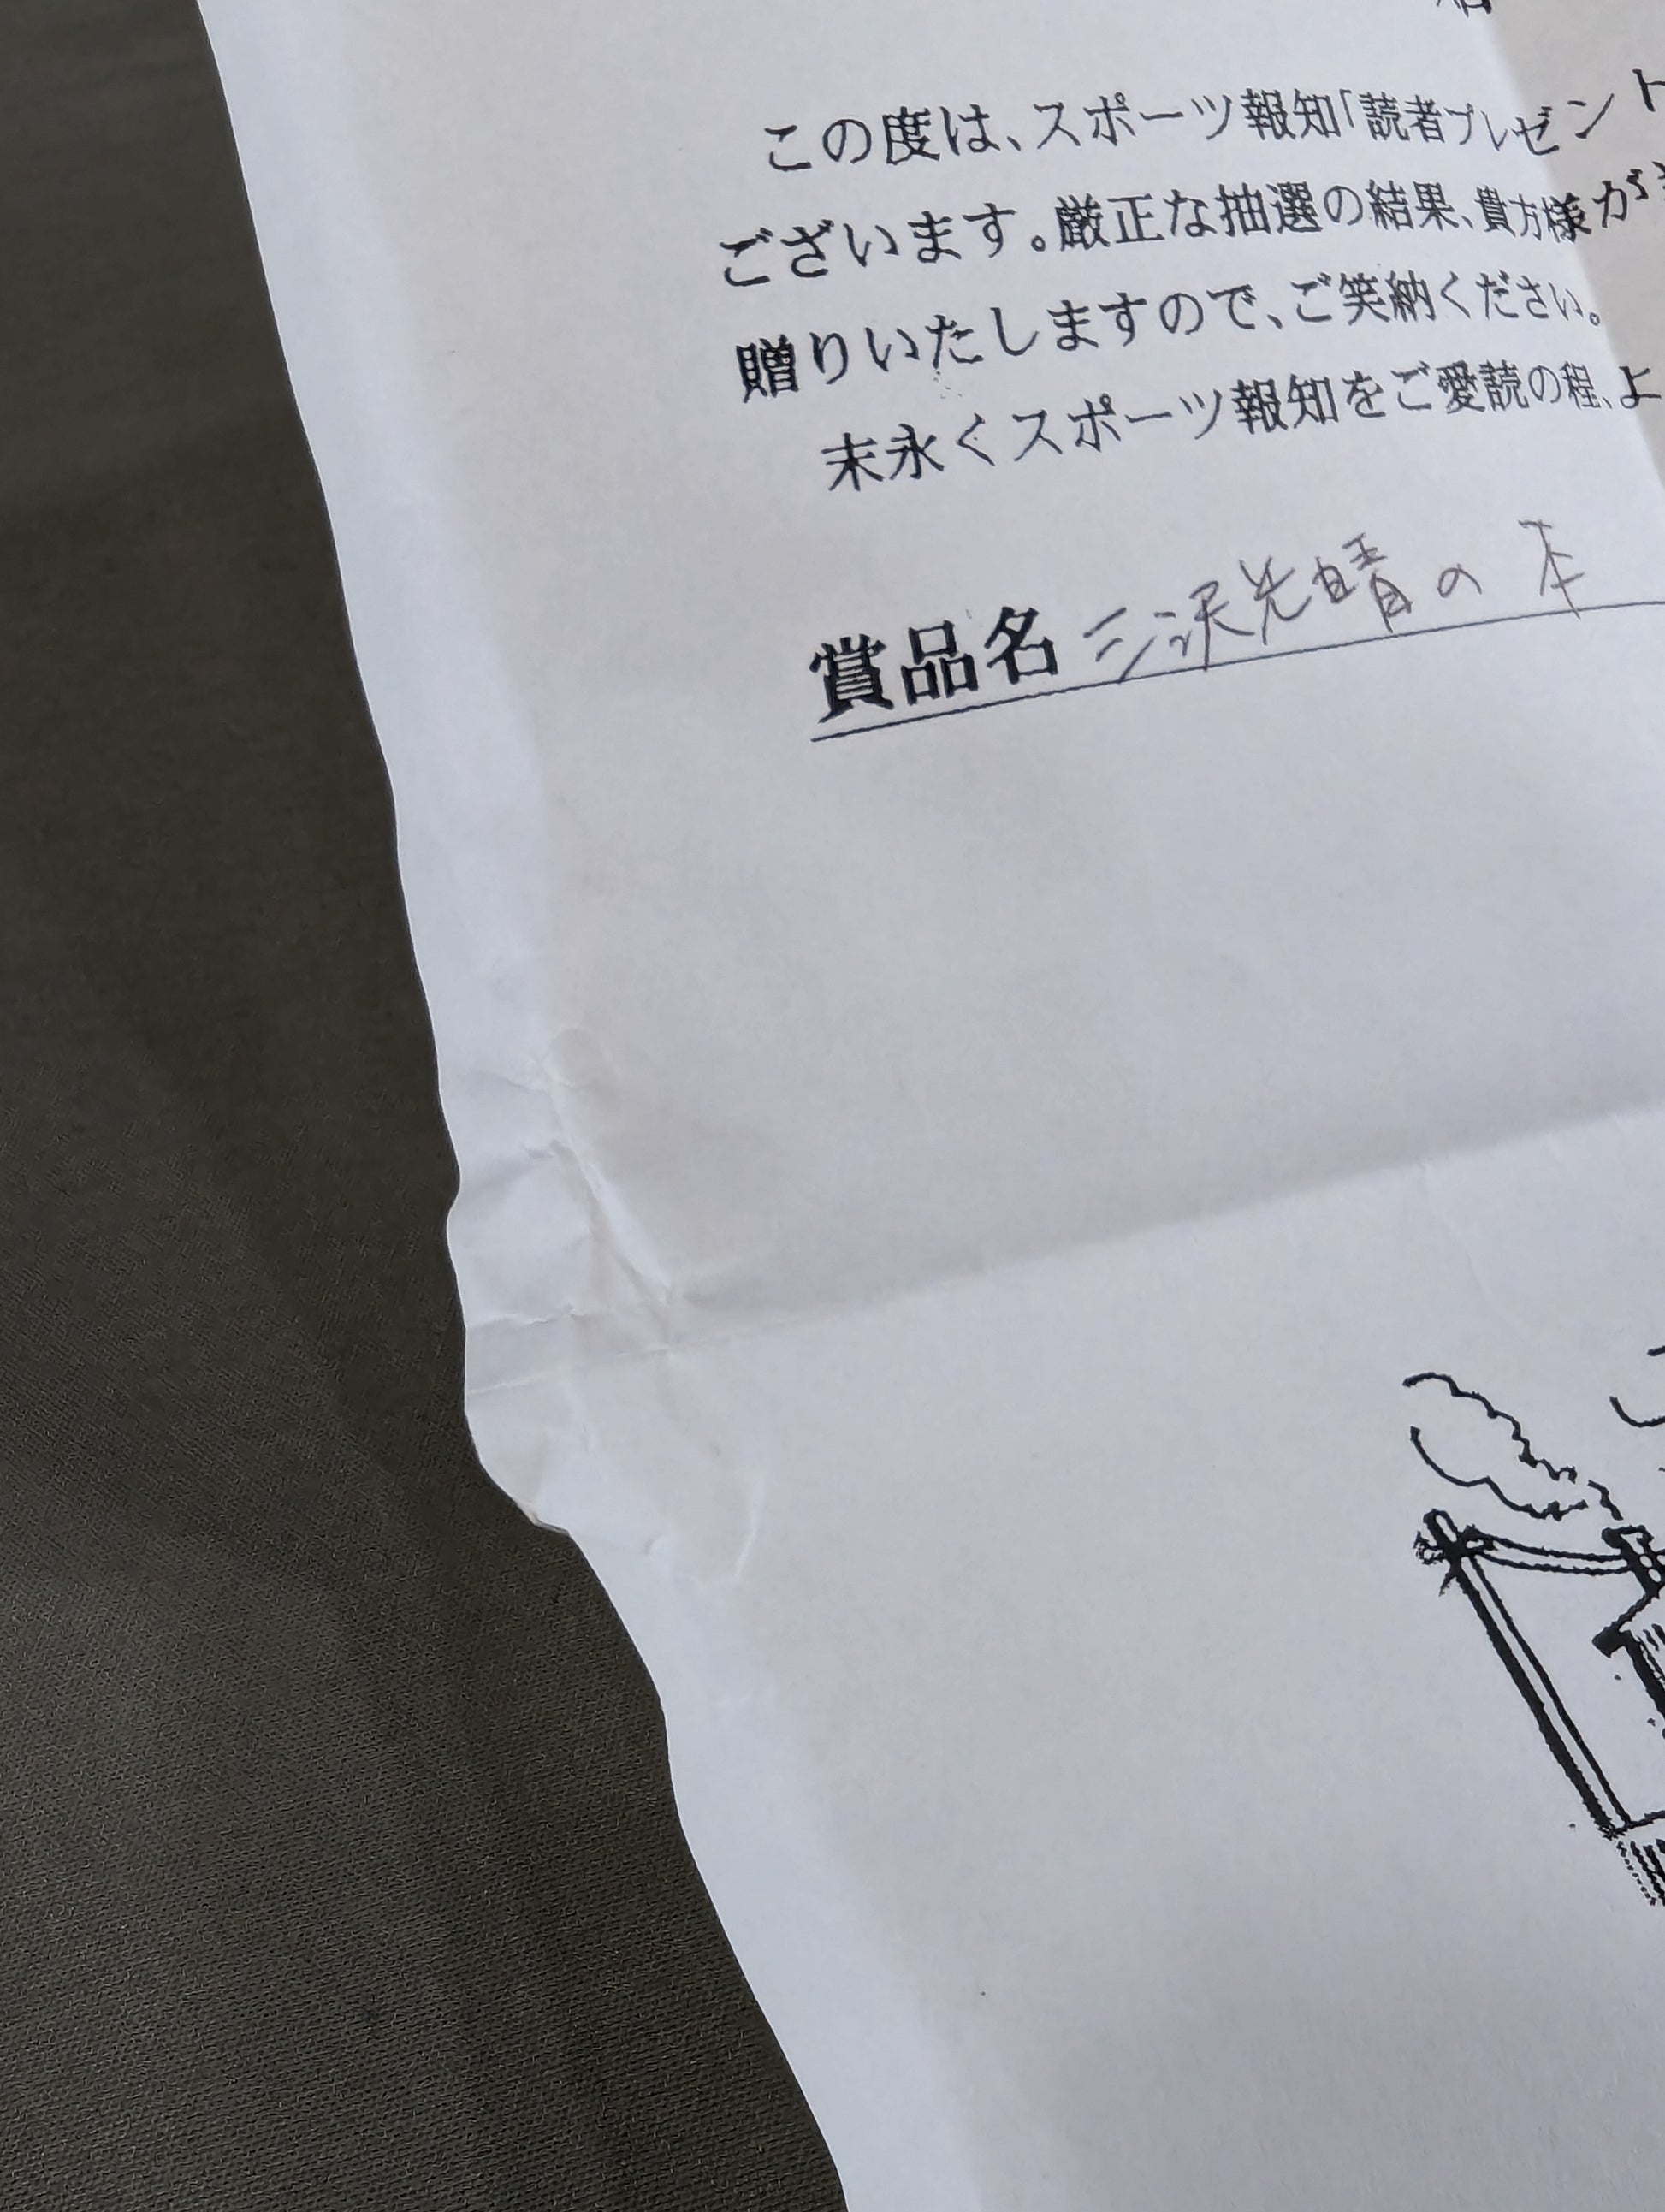 この度は、スポーツ報知「読者プレゼント
ございます。厳正な抽選の結果、貴方様が
贈りいたしますので、ご笑納ください。
末永くスポーツ報知をご愛読の程、よ
賞品名 三沢光晴の本